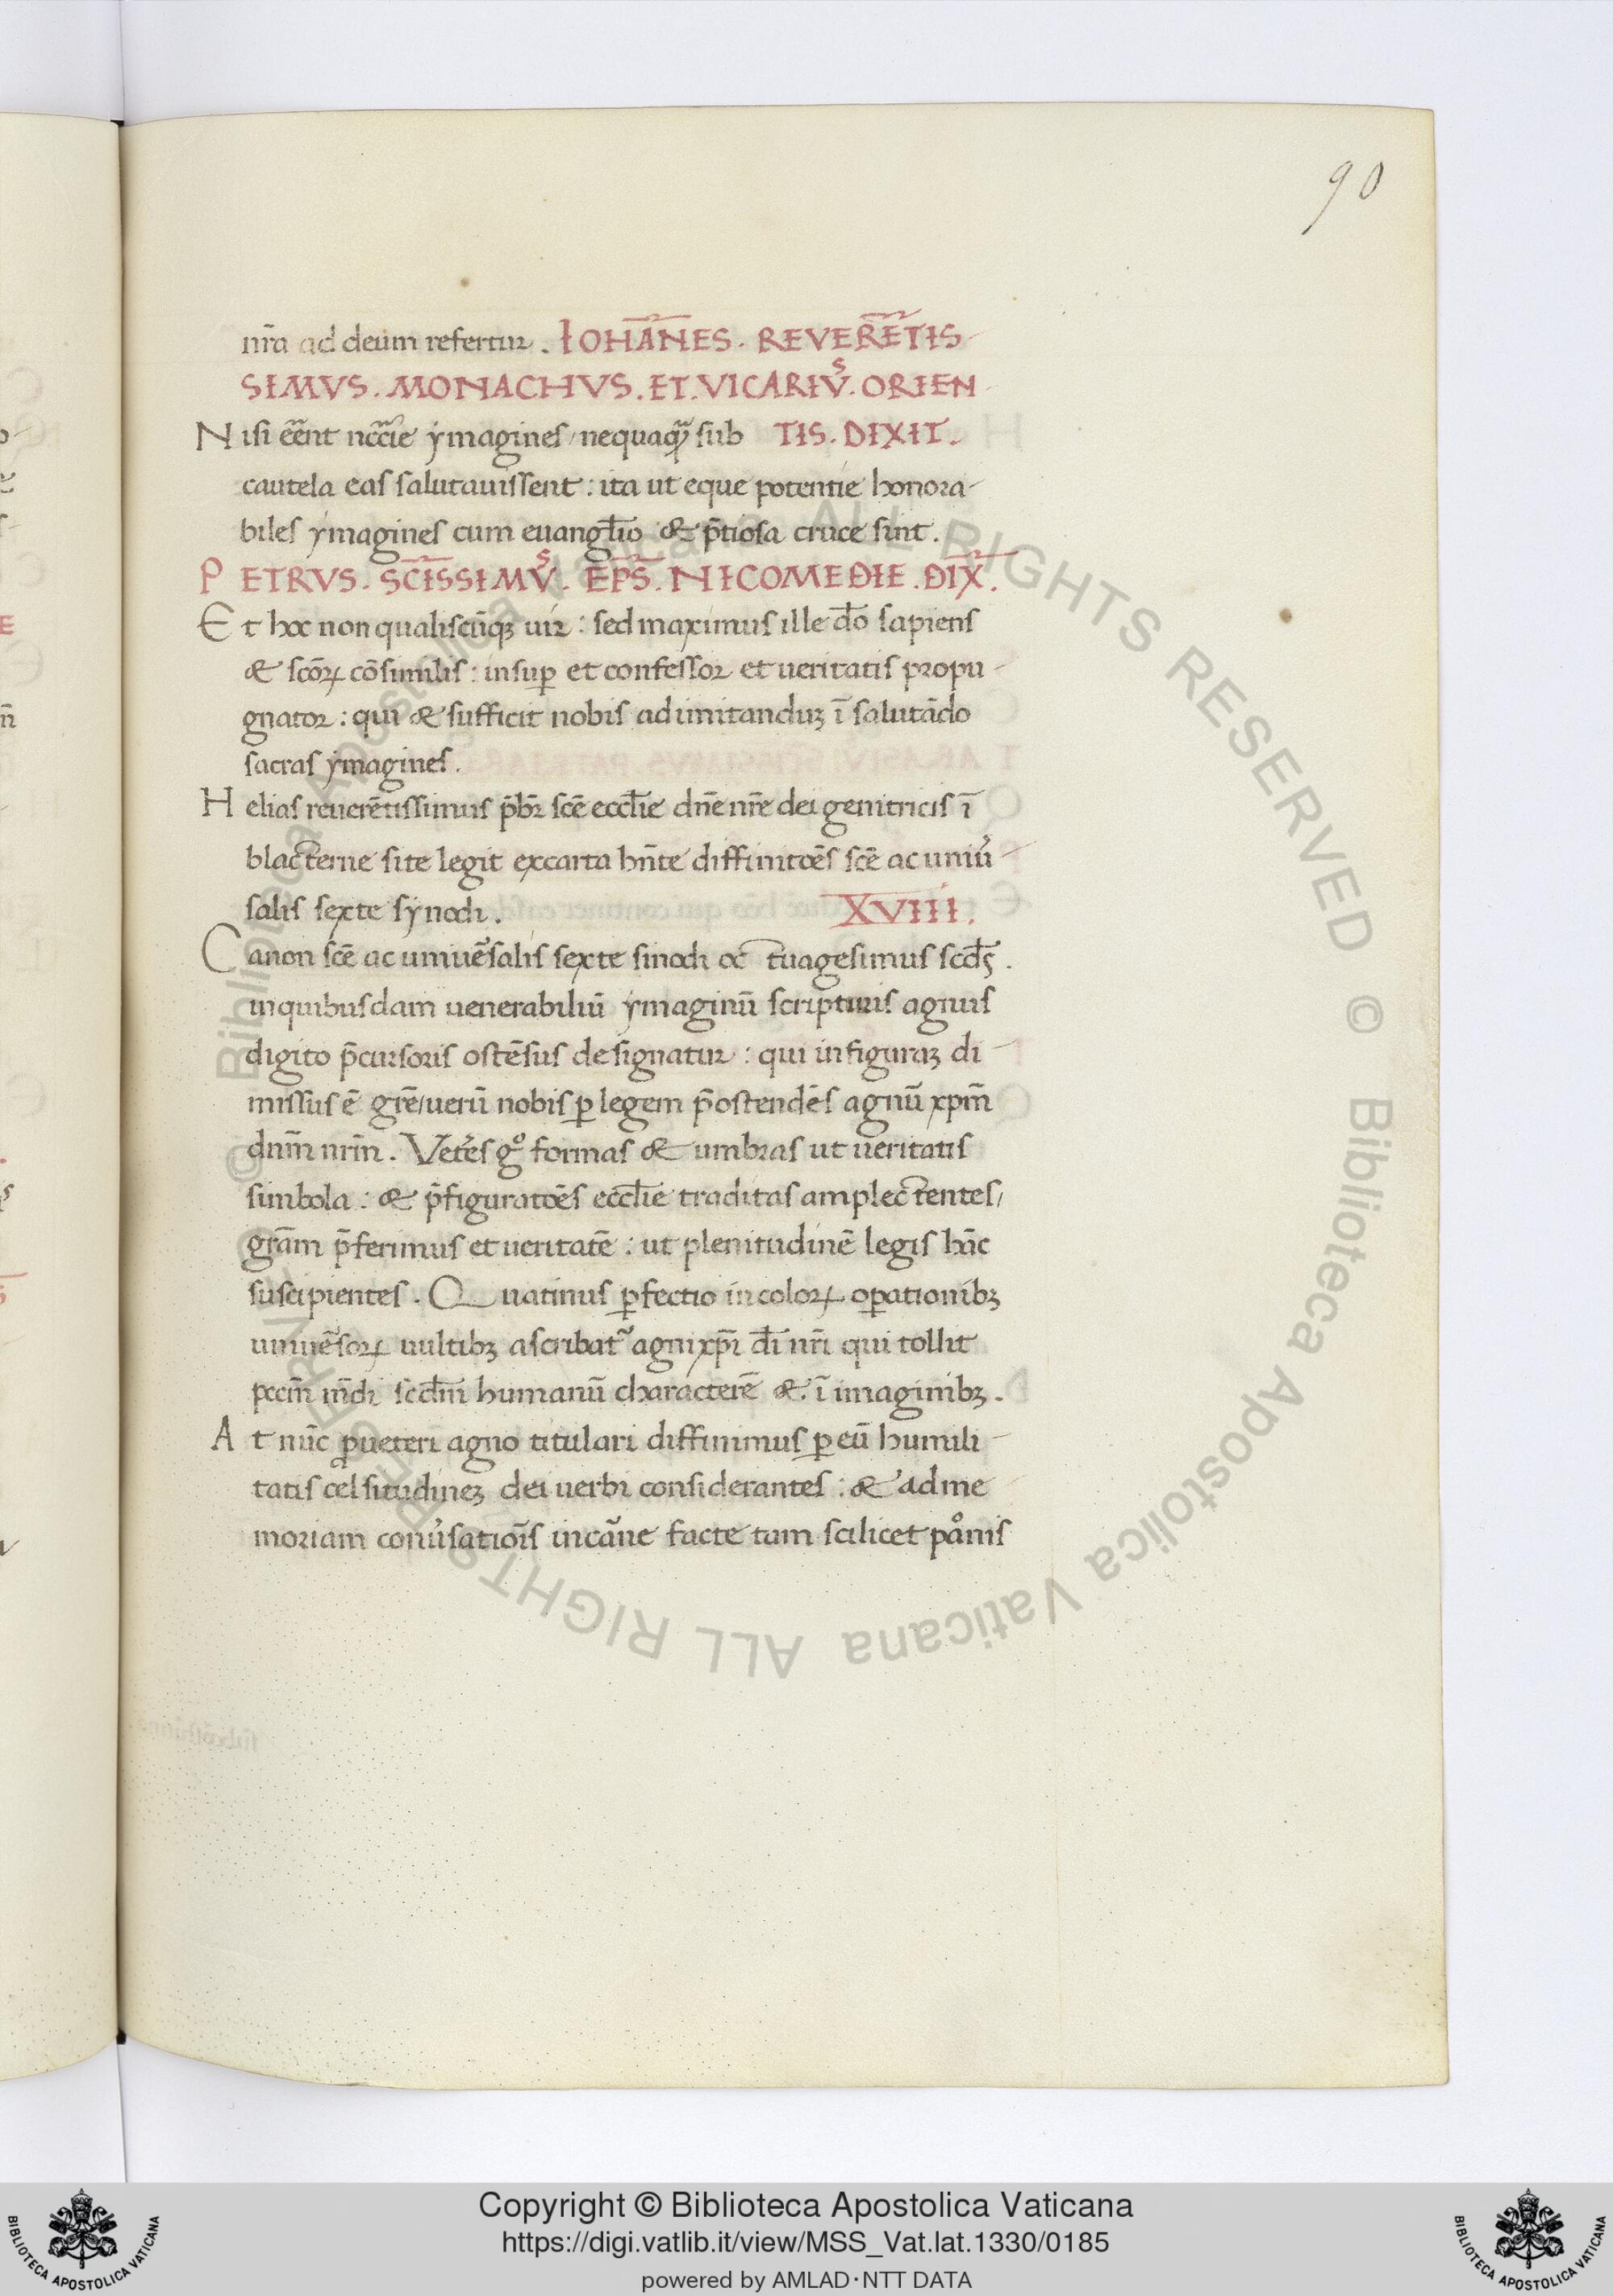 90
nr̄a ad deum refertur. IOHĀNES. REVERĒTIS
SIMVS. MONACHVS. ET. VICARIV̉. ORIEN
Nisi eēnt nc̄cīe ymagines / nequaq̄ꝫ sub TIS. DIXIT.
cautela eas salutavissent: ita ut eque potentie honora-
biles ymagines cum euangl̄io & p̄tiosa cruce sint.
PETRVS. SC̄ISSIMV̉. EP̄S. NICOMEDIE. DIX̄.
Et hoc non qualiscūqꝫ uir: sed maximus ille dō sapiens
& scōꝝ cōsimilis: insuꝑ et confessor et ueritatis propu-
gnator: qui & sufficit nobis ad imitanduꝫ ī salutādo
sacras ymagines.
Helias reuerētissimus p̄br̄ scē eccl̄ie dn̄e nr̄e dei genitricis ī
blacterne site legit ex carta hn̄te diffinitōes scē ac uniu̓-
salis sexte synodi. XVIII.
Canon scē ac uniue̓salis sexte sinodi octuagesimus scds̄.
in quibusdam uenerabiliū ymaginū scripturis agnus
digito p̄cursoris ostēsus designatur: qui in figuraꝫ di-
missus ē gr̄e / uerū nobis ꝑ legem p̄ostendēs agnū xp̄m
dn̄m nr̄m. Vete̓s gͦ formas & umbras ut ueritatis
simbola: & p̄figuratōes eccl̄ie traditas amplectentes /
gr̄am p̄ferimus et ueritatē: ut plenitudinē legis hāc
suscipientes. Quatinus ꝑfectio in coloꝝ oꝑationibꝫ
uniue̓soꝝ uultibꝫ ascribat᷑ agni xp̄i dī nr̄i qui tollit
pcc̄m mn̄di scd̄m humanū characterē & ī imaginibꝫ.
At nūc ꝓ ueteri agno titulari diffinimus ꝑ eū humili-
tatis celsitudineꝫ dei uerbi considerantes: & ad me
moriam conu̓satiōis in carne facte tum scilicet
© Biblioteca Apostolica Vaticana ALL RIGHTS RESERVED © Biblioteca Apostolica Vaticana ALL RIGHTS RESERVED
Copyright © Biblioteca Apostolica Vaticana
https://digi.vatlib.it/view/MSS_Vat.lat.1330/0185
powered by AMLAD·NTT DATA
BIBLIOTECA APOSTOLICA VATICANA
BIBLIOTECA APOSTOLICA VATICANA